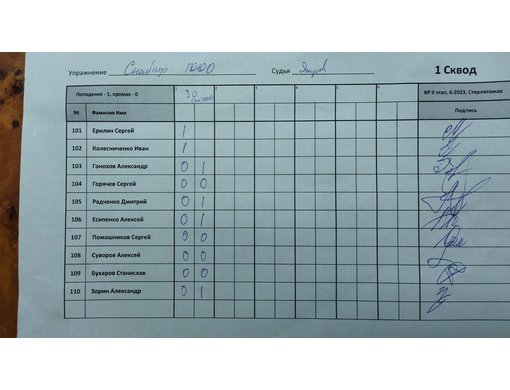 Упражнение Снайпер 1000 Судья
1 Сквод
Попадание - 1, промах - 0 1 2 3 4 5 6 КР II этап, 6-2023, Стерлитамак
30
№ Фамилия Имя Подпись
101 Ерилин Сергей 1
102 Колесниченко Иван 1
103 Гонохов Александр 0 1
104 Горячев Сергей 0 0
105 Радченко Дмитрий 0 1
106 Есиленко Алексей 0 1
107 Помошников Сергей 0 0
108 Суворов Алексей 0 0
109 Бухаров Станислав 0 0
110 Зорин Александр 0 1